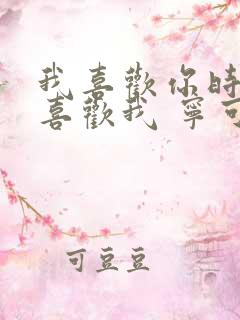 我喜歡你時
喜歡我 寧可
可豆豆